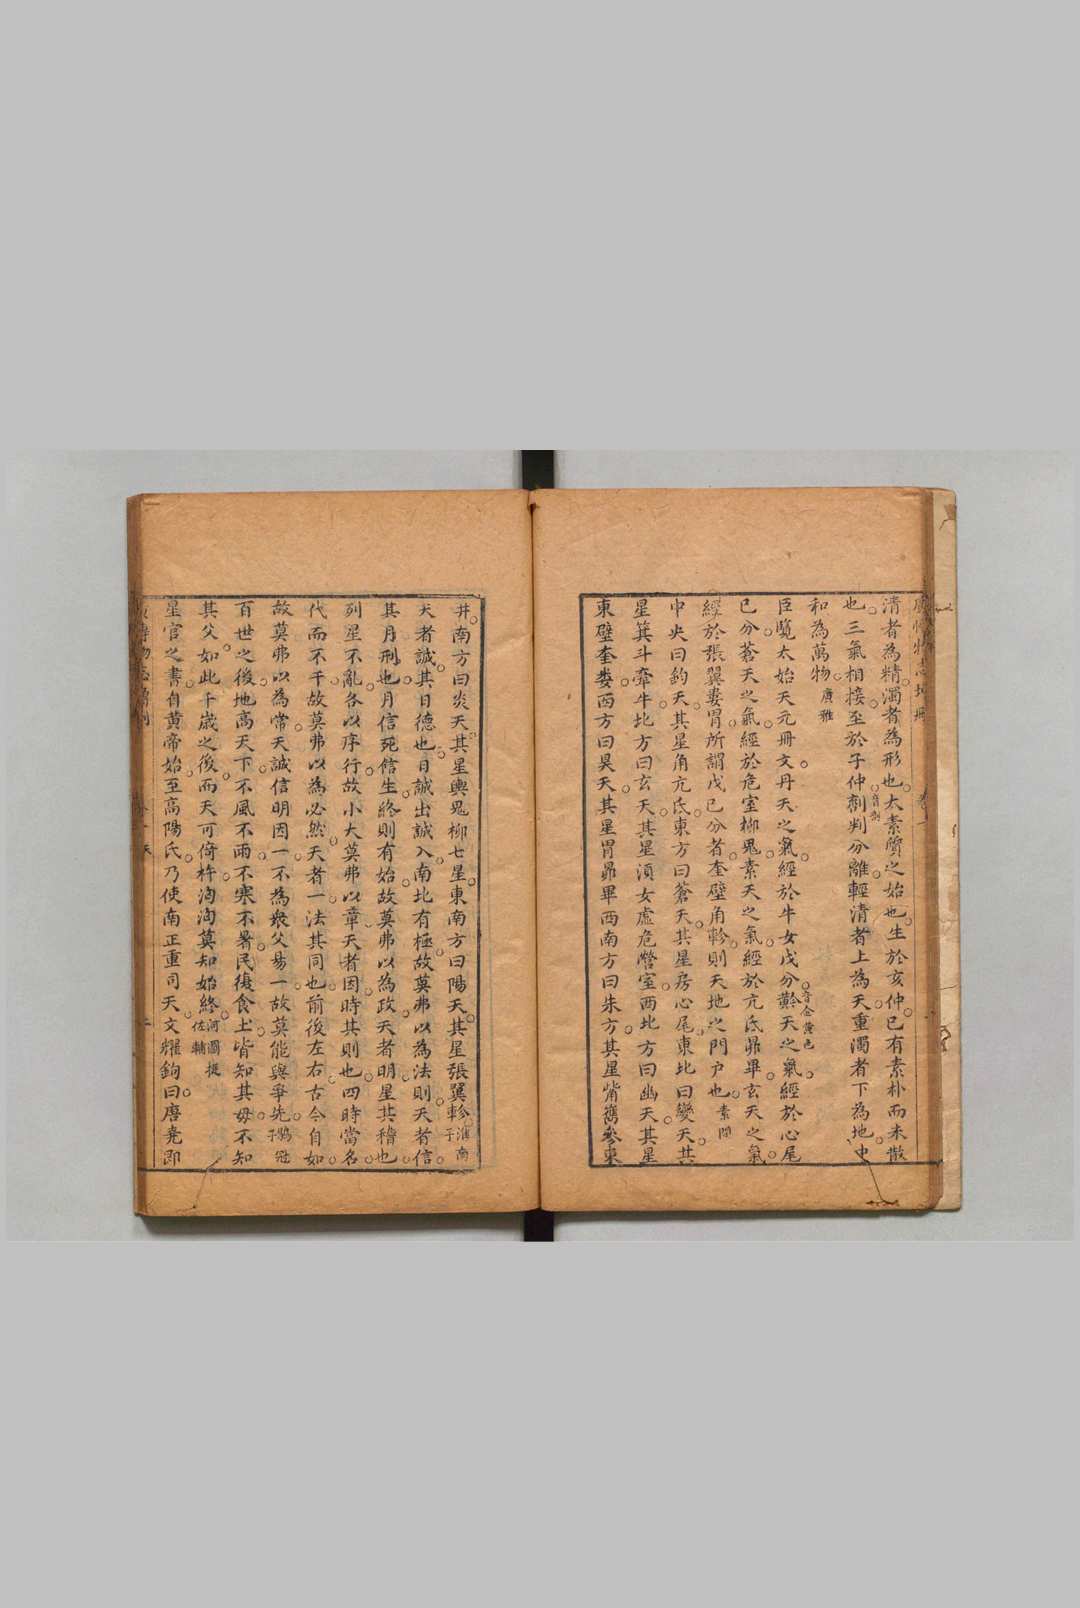 清者為精濁者為形也太素質之始也生於亥仲已有素朴而未散
也三氣相接至於子仲剖判分離輕清者上為天重濁者下為地中
和為萬物廣雅
臣覽太始天元冊文丹天之氣經於牛女戊分黅音金黃色天之氣經於心尾
已分蒼天之氣經於危室柳鬼素天之氣經於亢氐昴畢玄天之氣
經於張翼婁胃所謂戊已分者奎壁角軫則天地之門戶也素問
中央曰鈞天其星角亢氐東方曰蒼天其星房心尾東北曰變天其
星箕斗牽牛北方曰玄天其星須女虛危營室西北方曰幽天其星
東壁奎婁西方曰昊天其星胃昴畢西南方曰朱方其星觜嶲參東
井南方曰炎天其星輿鬼柳七星東南方曰陽天其星張翼軫淮南子
天者誠其日德也日誠出誠入南北有極故莫弗以為法則天者信
其月刑也月信死信生終則有始故莫弗以為政天者明星其稽也
列星不亂各以序行故小大莫弗以章天者因時其則也四時當名
代而不干故莫弗以為必然天者一法其同也前後左右古今自如
故莫弗以為常天誠信明因一不為衆父易一故莫能與爭先鶡冠子
百世之後地高天下不風不雨不寒不暑民復食土皆知其母不知
其父如此千歲之後而天可倚杵洶洶莫知始終河圖挺佐輔
星官之書自黃帝始至高陽氏乃使南正重司天文耀鉤曰唐堯即